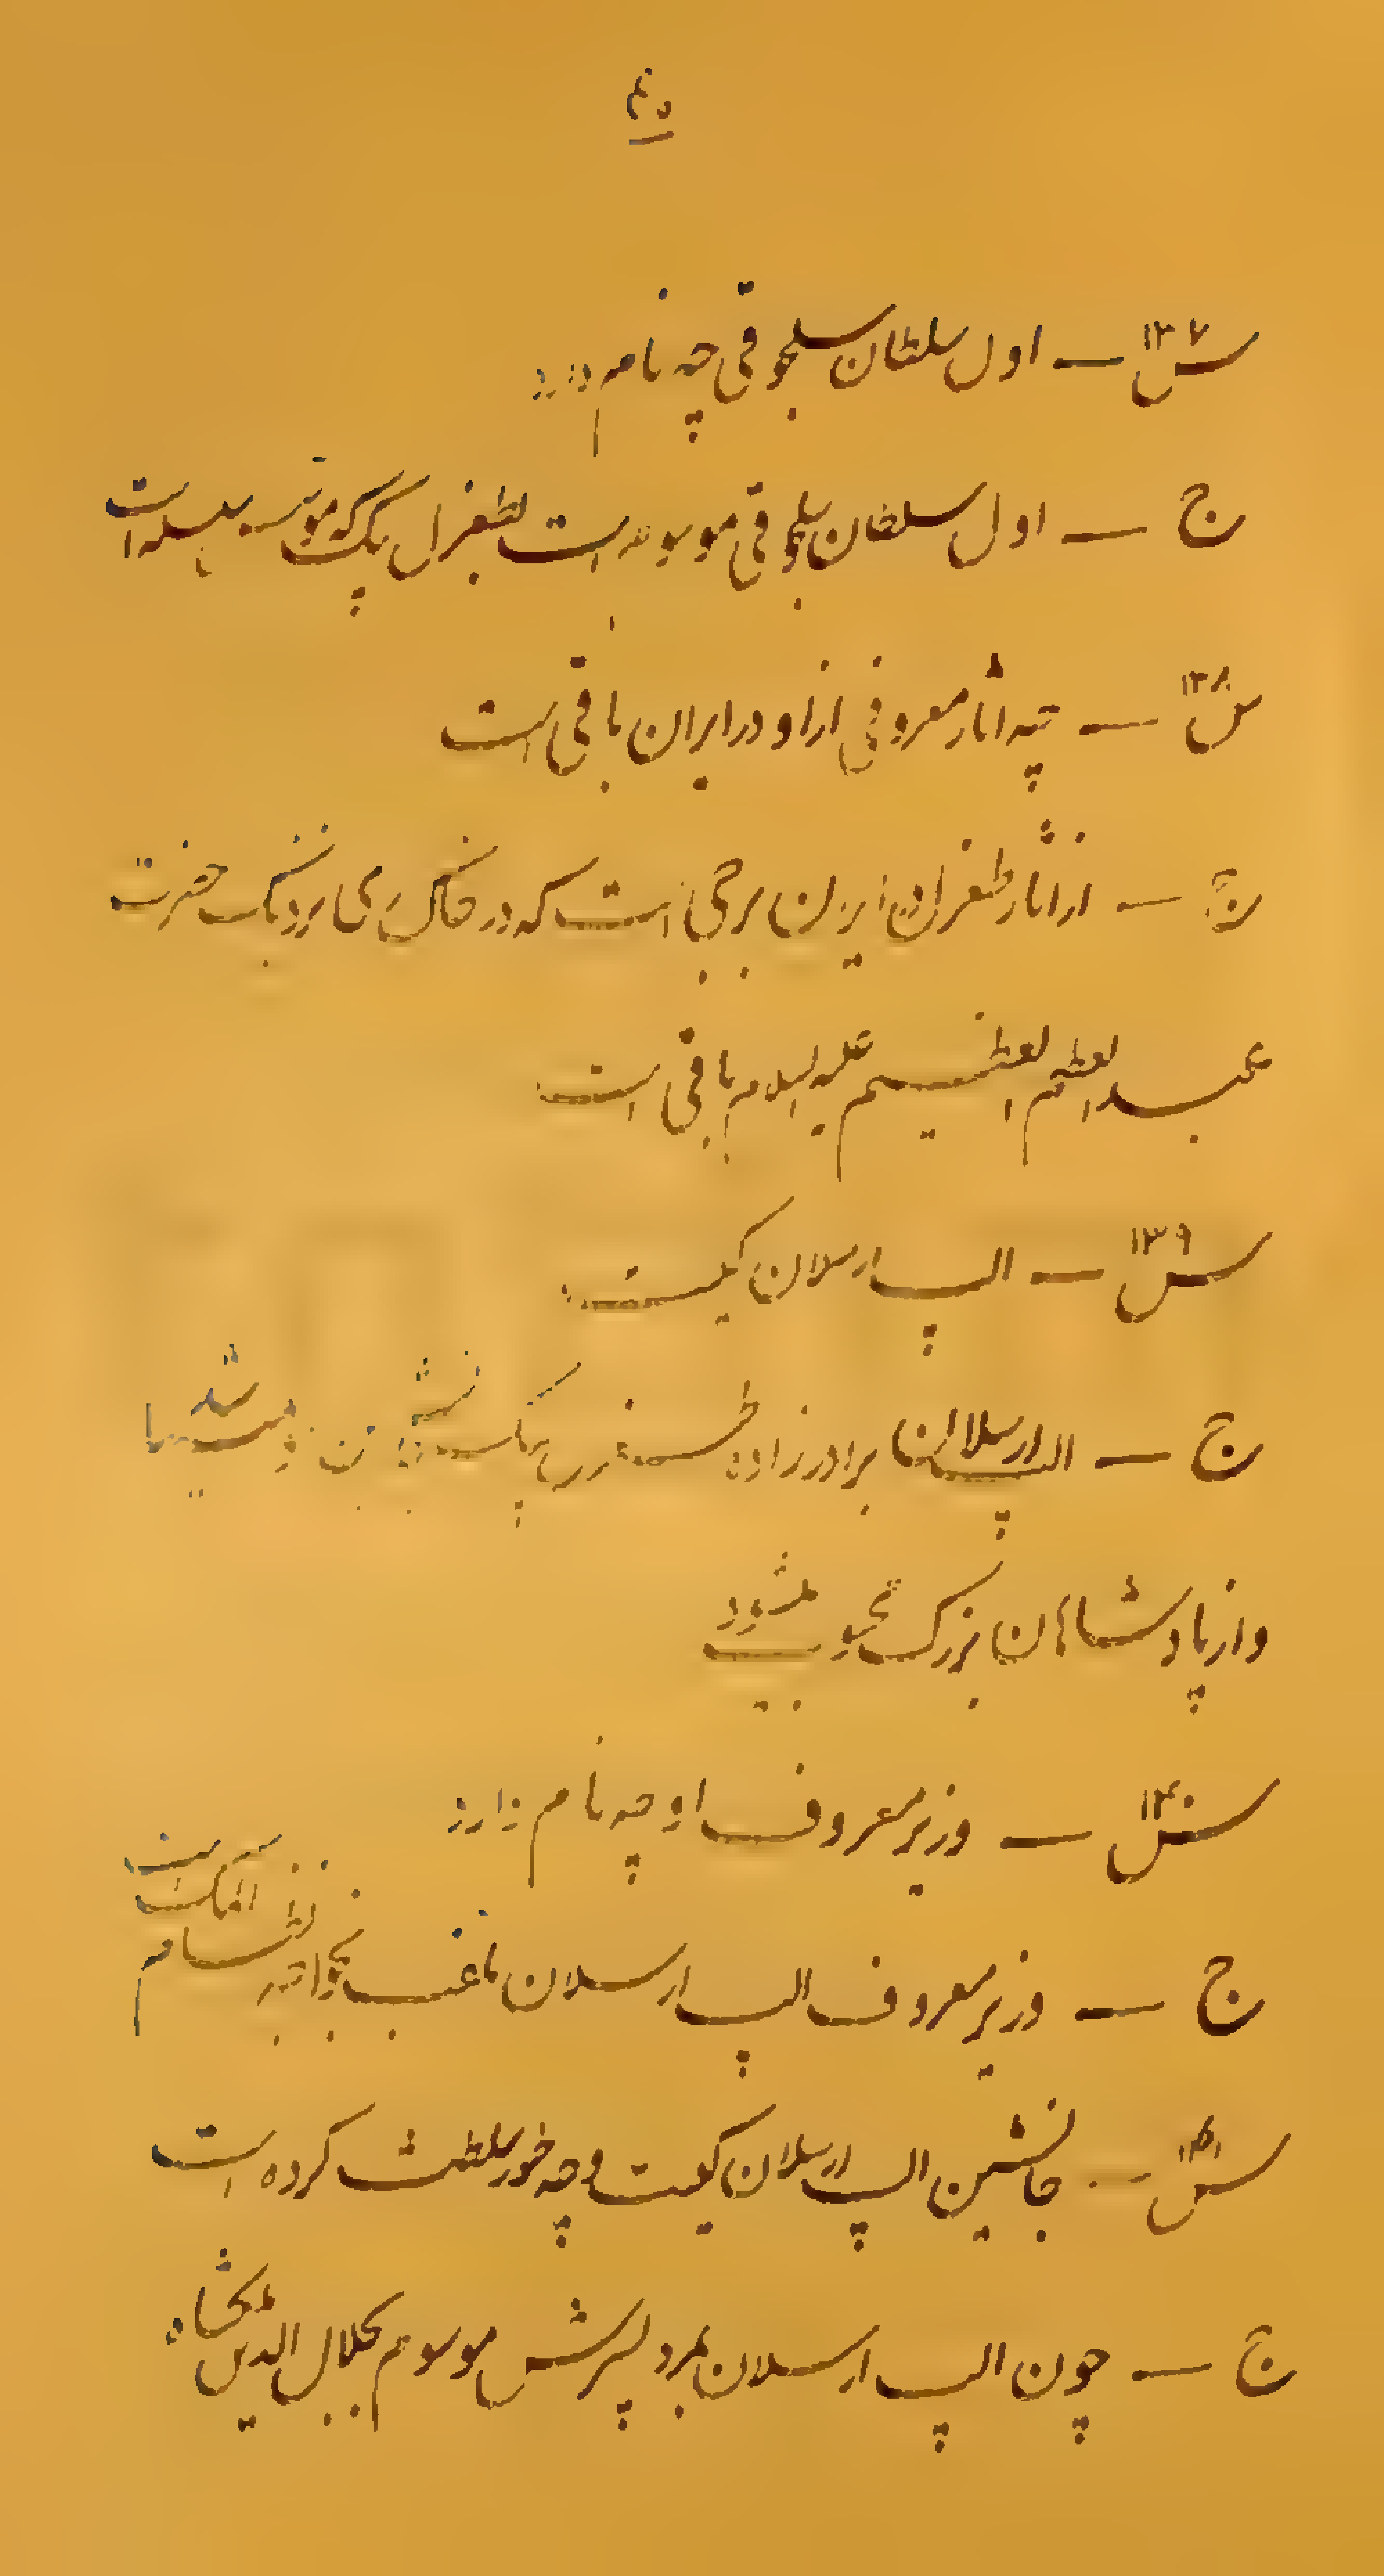 س ۱۳۷ — اول سلطان سلجوقی چه نام دارد
ج — اول سلطان سلجوقی موسوم است بطغرل بیک که مؤسس سلسله است
س ۱۳۸ — چه اثار معروفی از او در ایران باقی است
ج — از اثار طغرل در ایران برجی است که در خاک ری نزدیک حضرت
عبدالعظیم العظیم علیه السلام باقی است
س ۱۳۹ — الب ارسلان کیست
ج — الب ارسلان برادرزاده طغرل بیک
و از پادشاهان بزرگ محسوب میشود
س ۱۴۰ — وزیر معروف او چه نام دارد
ج — وزیر معروف الپ ارسلان ملقب بخواجه نظام الملک است
س ۱۴۱ — جانشین الپ ارسلان کیست و چه خور سلطنت کرده است
ج — چون الپ ارسلان بمرد پسرش موسوم بجلال الدین ملکشاه